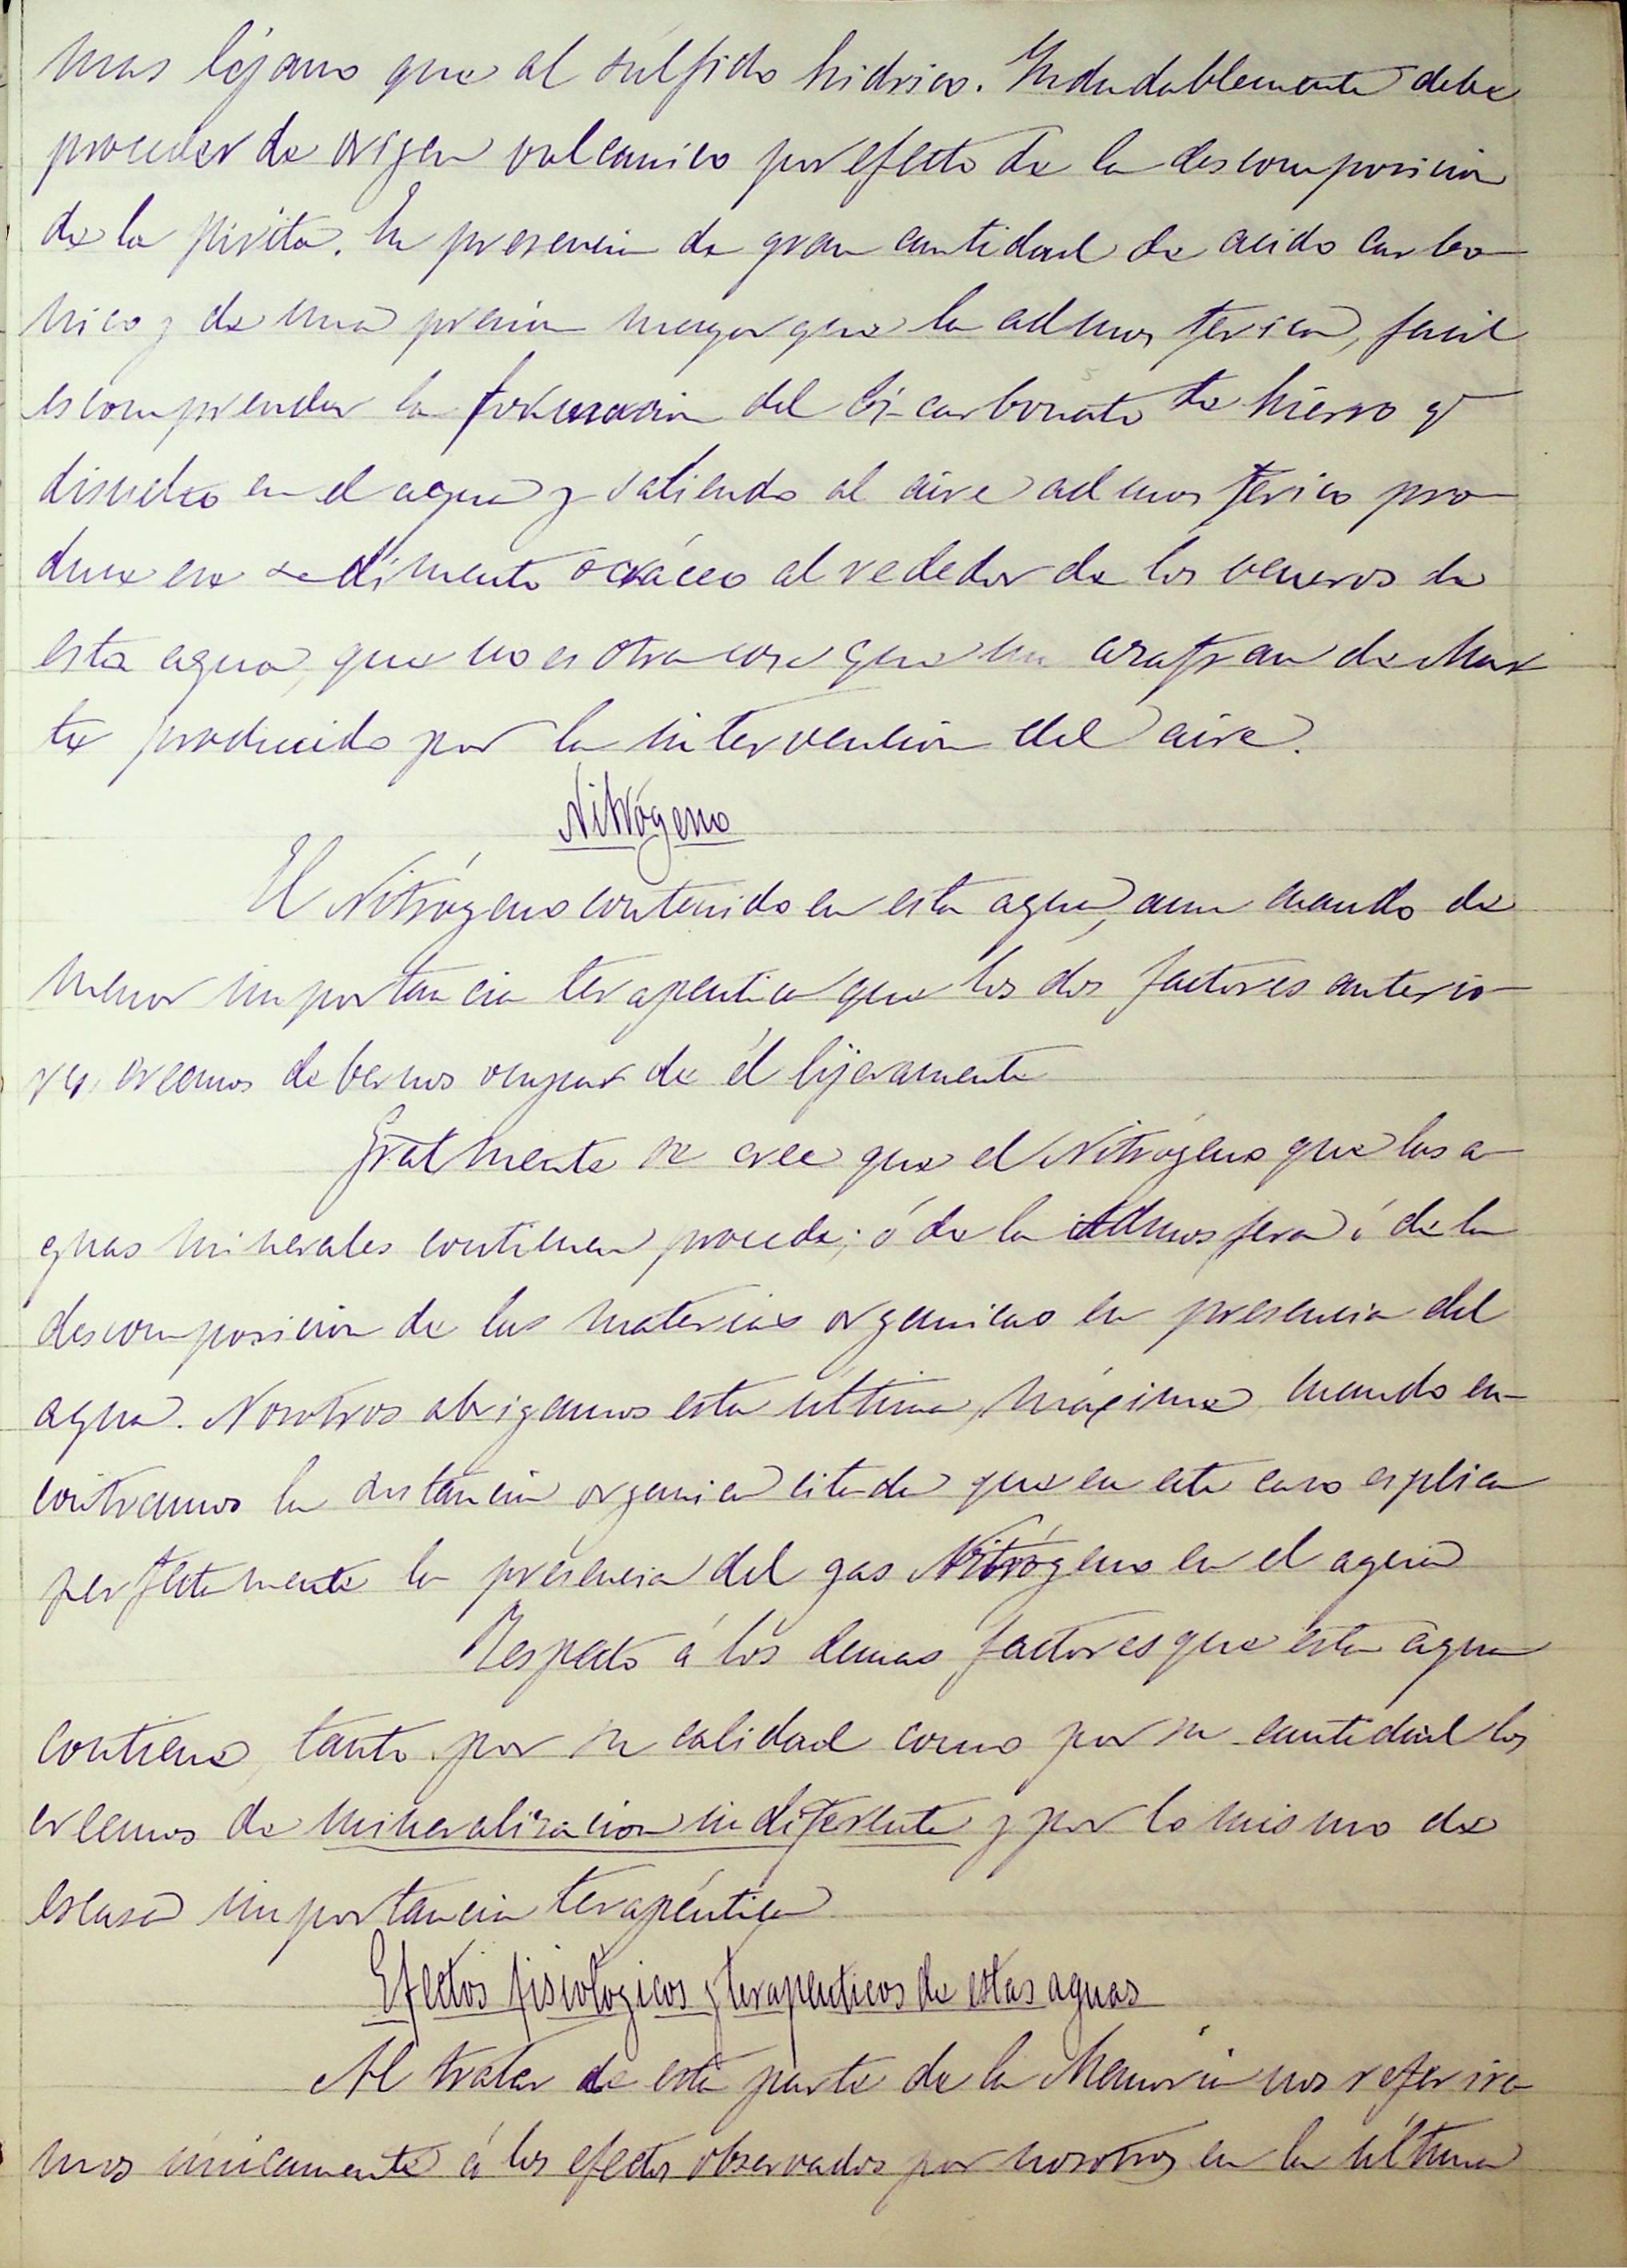 mas léjano que al súlfido hidrico. Indudablemente debe
proceder de orijen volcanico por efecto de la descomposicion
de la pirita. En presencia de gran cantidad de acido carbo-
nico y de una presion mayor que la admosferica, facil
es comprender la formacion del bi-carbonato de hierro qᵉ
disuelto en el agua y saliendo al aire admosferico pro-
duce ese sedimento ocráceo al rededor de los veneros de
esta agua, que no es otra cosa que un azafran de Mar
te producido por la intervencion del aire.
Nitrógeno
El Nitrógeno contenido en esta agua, aun cuando de
menor importancia terapeutica que los dos factores anterio-
res, creemos debernos ocupar de él lijeramente
Gralmente se cree que el Nitrógeno que las a-
guas minerales contienen procede; ó de la Admosfera ó de la
descomposicion de las materias organicas en presencia del
agua. Nosotros abrigamos esta ultima, máxime cuando en-
contramos la sustancia organica citada que en este caso esplica
perfectamente la presencia del gas Nitrógeno en el agua
Respecto á los demas factores que esta agua
contiene, tanto por su calidad como por su cantidad los
creemos de mineralizacion indiferente y por lo mismo de
escasa importancia terapéutica
Efectos fisiologicos y terapeuticos de estas aguas
Al tratar de esta parte de la Memoria nos referire
mos únicamente á los efectos observados por nosotros en la última